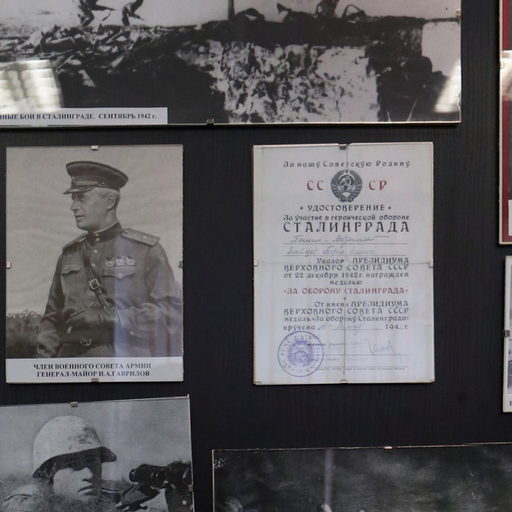 ННЫЕ БОИ В СТАЛИНГРАДЕ. СЕНТЯБРЬ 1942 г.
ЧЛЕН ВОЕННОГО СОВЕТА АРМИИ
ГЕНЕРАЛ-МАЙОР И.А.ГАВРИЛОВ
За нашу Советскую Родину
СССР
• УДОСТОВЕРЕНИЕ •
За участие в героической обороне
СТАЛИНГРАДА
Указом ПРЕЗИДИУМА
ВЕРХОВНОГО СОВЕТА СССР
от 22 декабря 1942 г. награжден
медалью
"ЗА ОБОРОНУ СТАЛИНГРАДА"
От имени ПРЕЗИДИУМА
ВЕРХОВНОГО СОВЕТА СССР
медаль "За оборону Сталинграда"
вручена 194 г.